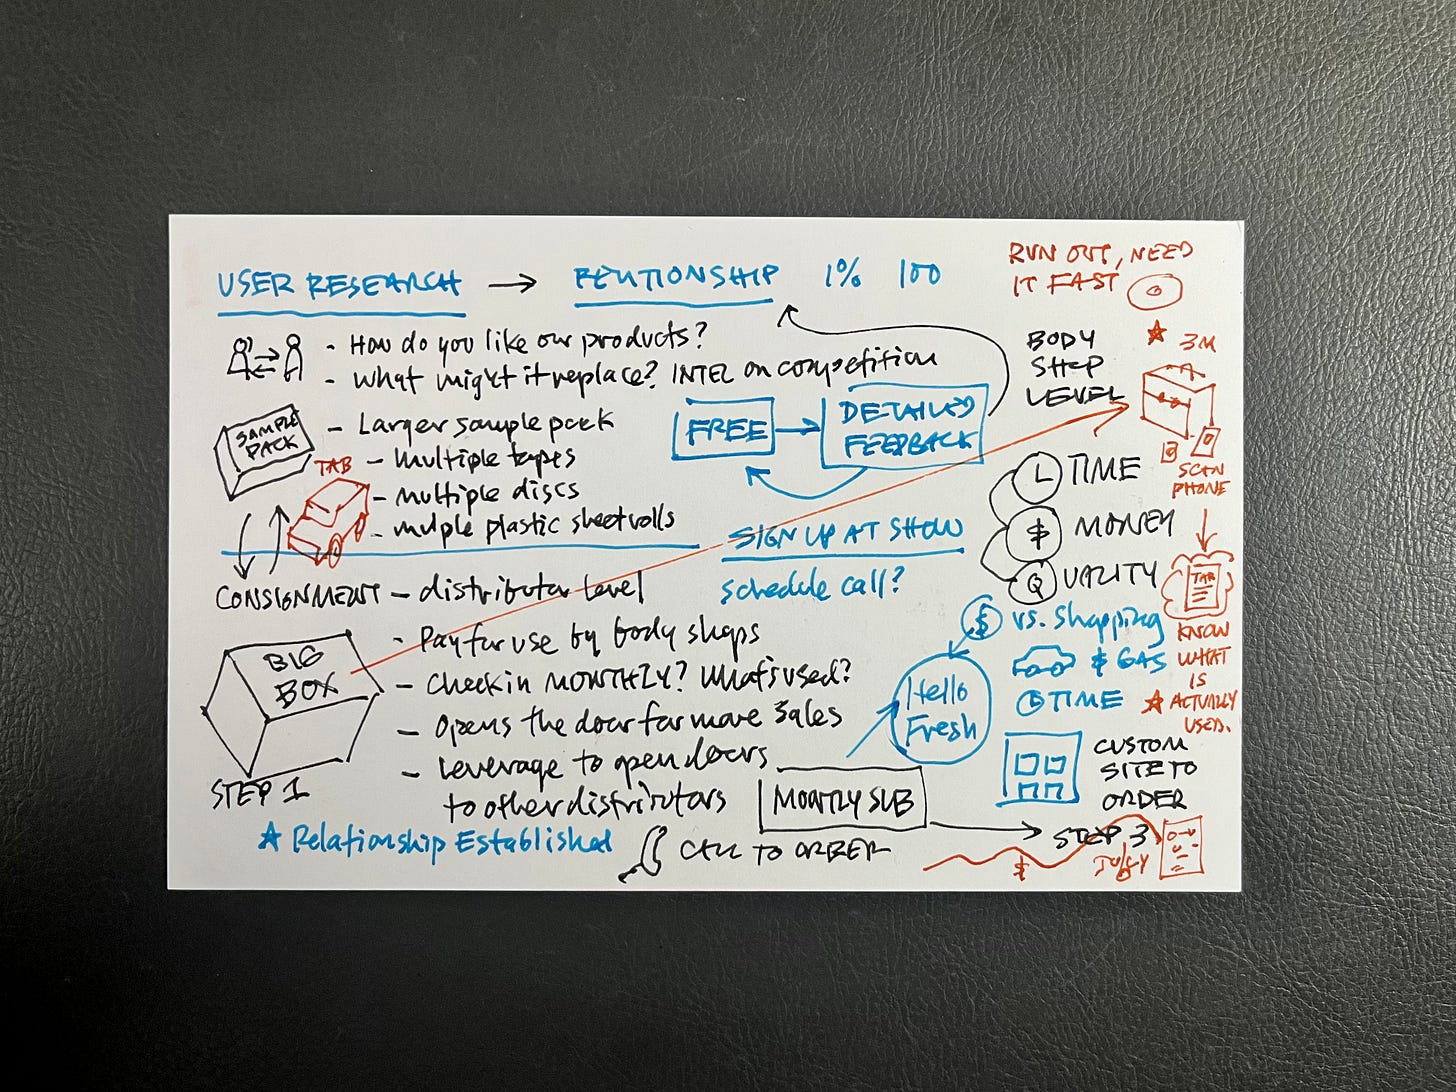 USER RESEARCH → RELATIONSHIP 1% 100
- How do you like our products?
- What might it replace? INTEL on competition
SAMPLE PACK
- Larger sample pack
- multiple tapes
- multiple discs
- multple plastic sheet rolls
TAB
FREE → DETAILED FEEDBACK
SIGN UP AT SHOW
schedule call?
CONSIGNMENT - distributor level
BIG BOX
STEP 1
- Pay for use by body shops
- Check in MONTHLY? What's used?
- Opens the door for more sales
- Leverage to open doors
to other distributors
★ Relationship Established
CALL TO ORDER
MONTLY SUB
STEP 3
RUN OUT, NEED
IT FAST
BODY
SHOP
LEVEL
★ 3M
SCAN
PHONE
TAB
KNOW
WHAT
IS
★ ACTUALLY
USED.
TIME
$ MONEY
QUALITY
$ vs. shopping
& GAS
TIME
Hello
Fresh
CUSTOM
SITE TO
ORDER
$